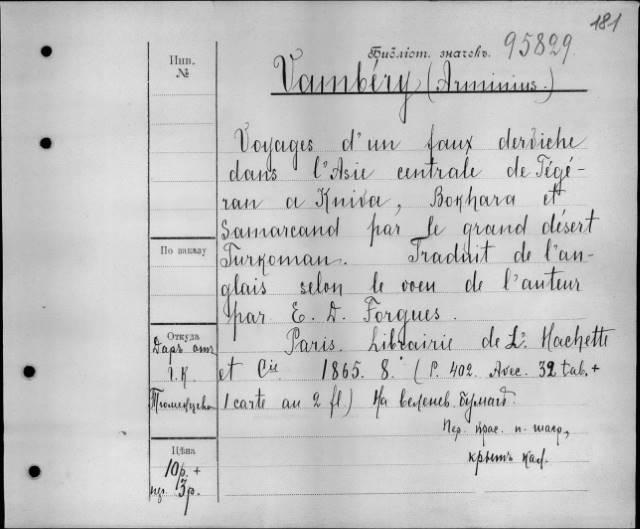 181
Библіот. значекъ. 95829
Инв.
№
Vambéry (Arminius.)
Voyages d'un faux derviche
dans l'Asie centrale de Tégé-
ran a Kniva, Bokhara et
Samarcand par le grand désert
По заказу
Turkoman. Traduit de l'an-
glais selon le voeu de l'auteur
par E. D. Forgues.
Откуда
Paris. Librairie de L. Hachette
Даръ отъ
Г.К.
et Cie 1865. 8. (P. 402. Avec. 32 tab. +
1 carte au 2 fl) На веленев. бумагѣ.
Пер. крас. п. шагр,
Цѣна
10р. +
пр. 3р.